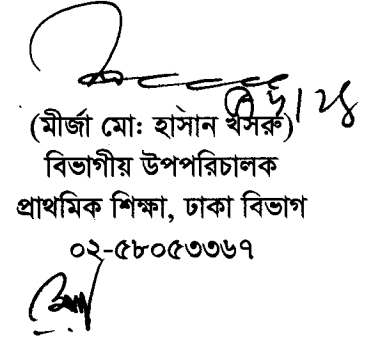 (মীর্জা মো: হাসান খসরু)
বিভাগীয় উপপরিচালক
প্রাথমিক শিক্ষা, ঢাকা বিভাগ
০২-৫৮০৫৩৩৬৭